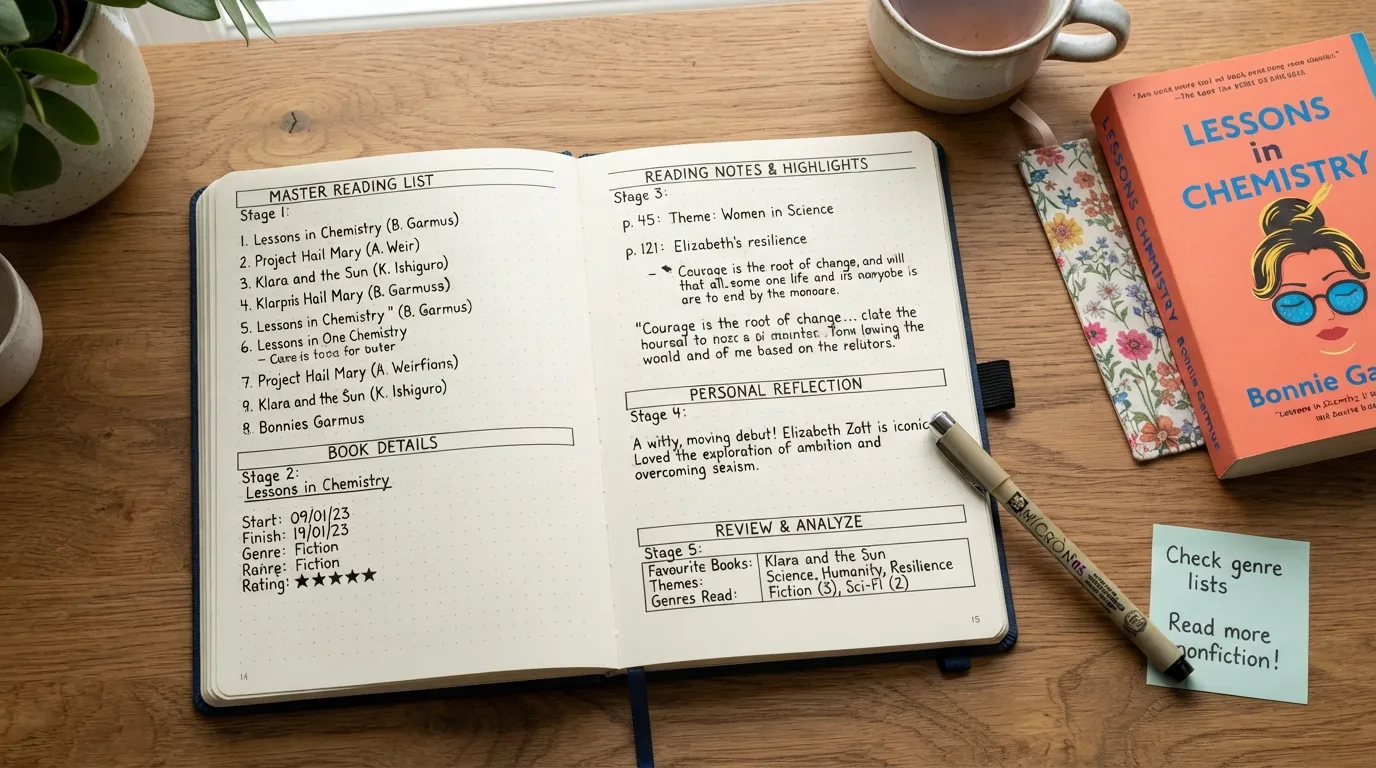 MASTER READING LIST
Stage 1:
1. Lessons in Chemistry (B. Garmus)
2. Project Hail Mary (A. Weir)
3. Klara and the Sun (K. Ishiguro)
4. Klarpis Hail Mary (B. Garmuss)
5. Lessons in Chemistry " (B. Garmus)
6. Lessons in One Chemistry
– Cure is tood for outer
7. Project Hail Mary (A. Weirfians)
9. Klara and the Sun (K. Ishiguro)
8. Bonnies Garmus
BOOK DETAILS
Stage 2:
Lessons in Chemistry
Start: 09/01/23
Finish: 19/01/23
Genre: Fiction
Ranre: Fiction
Rating: ★★★★★
14
READING NOTES & HIGHLIGHTS
Stage 3:
p. 45: Theme: Women in Science
p. 121: Elizabeth's resilience
– Courage is the root of change, and will
that all some one life and its namyobe is
are to end by the monoare.
"Courage is the root of change... clate the
hoursal to noze a oi mointes. Tom lowing the
world and of me based on the relutors."
PERSONAL REFLECTION
Stage 4:
A witty, moving debut! Elizabeth Zott is iconic.
Loved the exploration of ambition and
overcoming sexism.
REVIEW & ANALYZE
Stage 5:
Favourite Books: Klara and the Sun
Themes: Science, Humanity, Resilience
Genres Read: Fiction (3), Sci-Fi (2)
15
MICRON 05
LESSONS in CHEMISTRY BONNIE GARMUS
LESSONS
in
CHEMISTRY
Bonnie Ga
Check genre
lists
Read more
nonfiction!